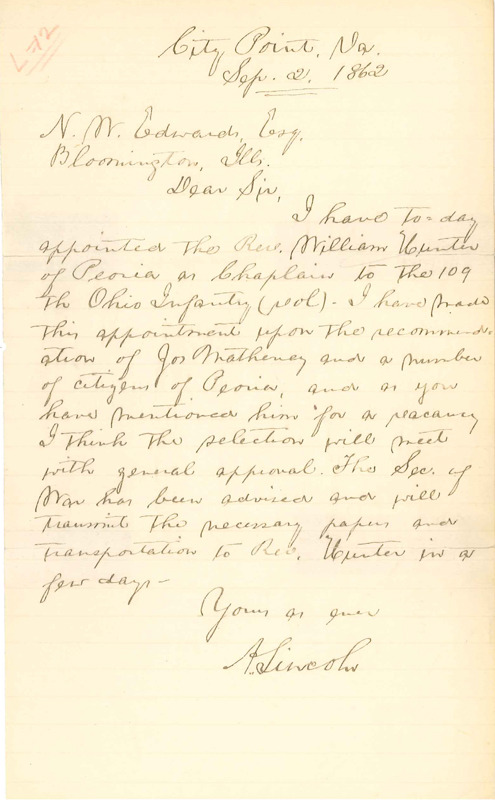 L-72
City Point, Va.
Sep. 2. 1862
N. W. Edwards, Esq.
Bloomington, Ills.
Dear Sir,
I have to=day
appointed the Rev. William Hunter
of Peoria as Chaplain to the 109
th Ohio Infantry (vol) - I have made
this appointment upon the recommend-
ation of Jos Matheney and a number
of citizens of Peoria, and as you
have mentioned him for a vacancy
I think the selection will meet
with general approval. The Sec. of
War has been advised and will
transmit the necessary papers and
transportation to Rev. Hunter in a
few days-
Yours as ever
A. Lincoln